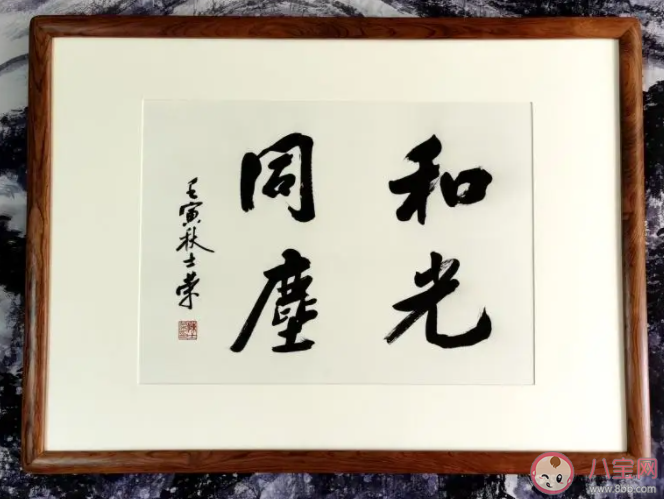 和光
同塵
壬寅秋士荣
八宝网
www.8bb.com